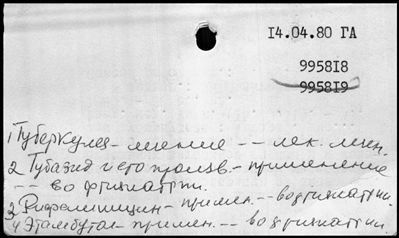 14.04.80 ГА
995818
995819
1 Туберкулез - лечение -- лек. лечен.
2 Тубазид и его произв. - применение
-- во фтизиатрии.
3 Рифампицин - примен. -- во фтизиатрии.
4 Этамбутол - примен. -- во фтизиатрии.